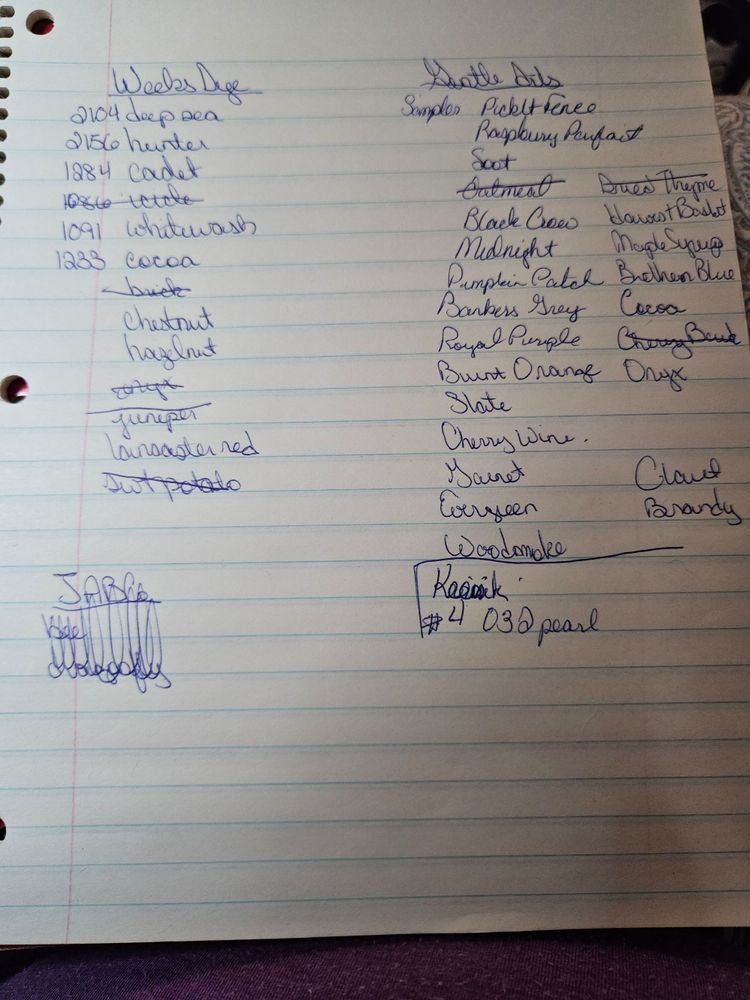 Weeks Dye
2104 deep sea
2156 hunter
1284 cadet
1286 icicle
1091 whitewash
1233 cocoa
brick
chestnut
hazelnut
onyx
juniper
lancaster red
swt potato
JABCo
bee
dragonfly
Gentle Arts
Samples Pickett Fence
Raspbury Parfait
Soot
Oatmeal Dried Thyme
Black Crow Harvest Basket
Midnight Maple Syrup
Pumpkin Patch Brethern Blue
Bankers Grey Cocoa
Royal Purple Cherry Bark
Burnt Orange Onyx
Slate
Cherry Wine.
Garnet Claret
Evergreen Brandy
Woodsmoke
Kreinik
#4 032 pearl